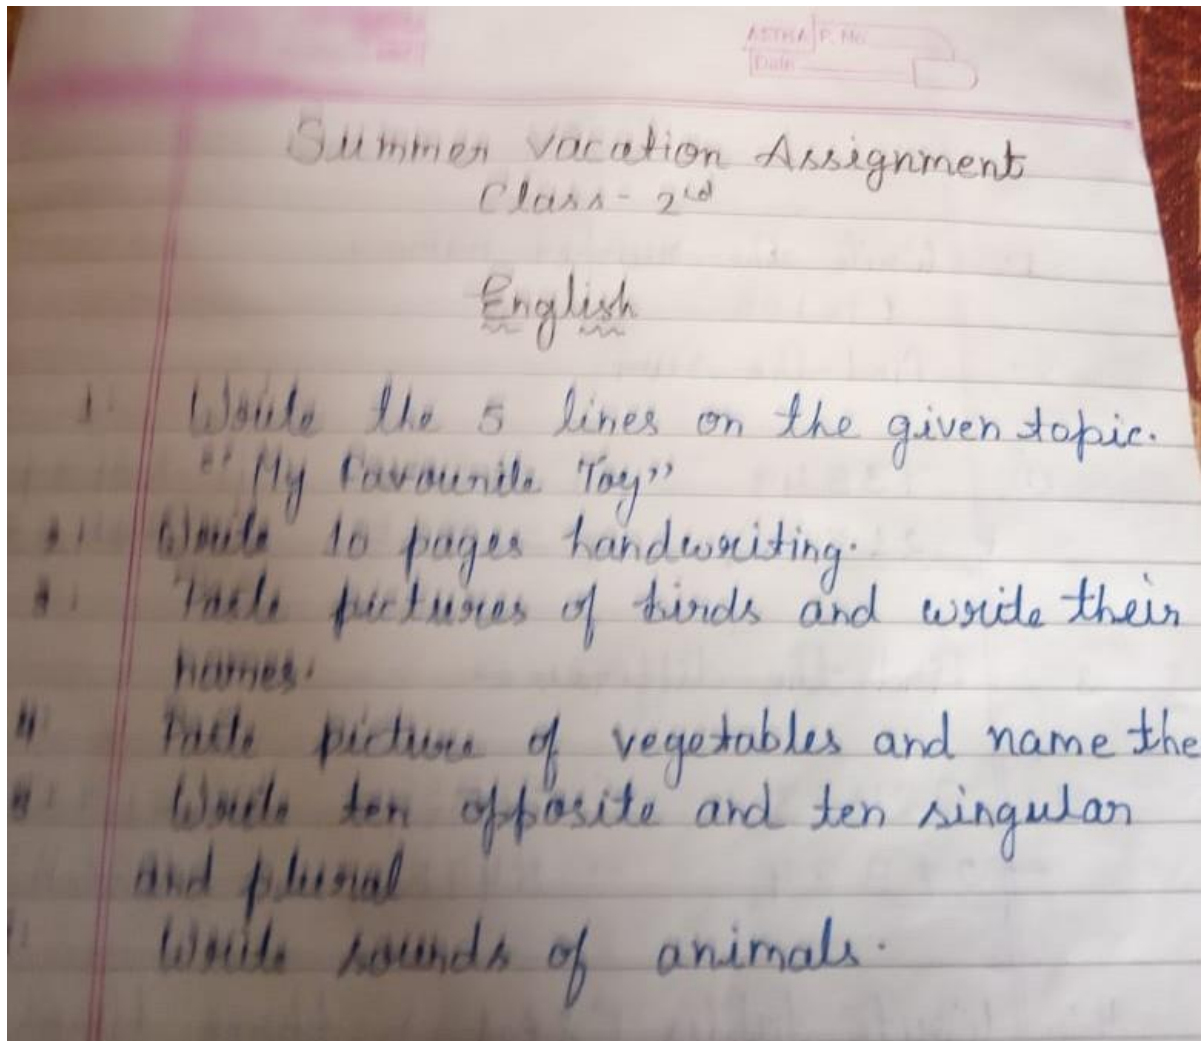 ASTHA P. No.
Date
Summer vacation Assignment
Class - 2nd
English
1. Write the 5 lines on the given topic.
"My Favourite Toy"
2. Write 10 pages handwriting.
3. Paste pictures of birds and write their
names.
4. Paste picture of vegetables and name the
5. Write ten opposite and ten singular
and plural
Write sounds of animals.